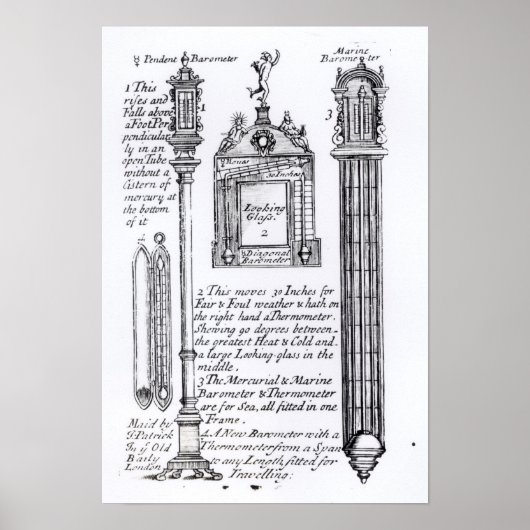 ☿ Pendent Barometer
Marine
Barometer
1 This
rises and
Falls above
a Foot Per
pendicular
ly in an
open Tube
without a
Cistern of
mercury at
the bottom
of it
1
3
2 Moues
30 Inches
Looking
Glass.
2
Diagonal
Barometer
4
2 This moves 30 Inches for
Fair & Foul weather & hath on
the right hand a Thermometer.
Shewing 90 degrees between
the greatest Heat & Cold and
a large Looking-glass in the
middle.
3 The Mercurial & Marine
Barometer & Thermometer
are for Sea, all fitted in one
Frame.
4 A New Barometer with a
Thermometer from a Span
to any Length fitted for
Travelling:
Maid by
J. Patrick
In ye Old
Baily
London